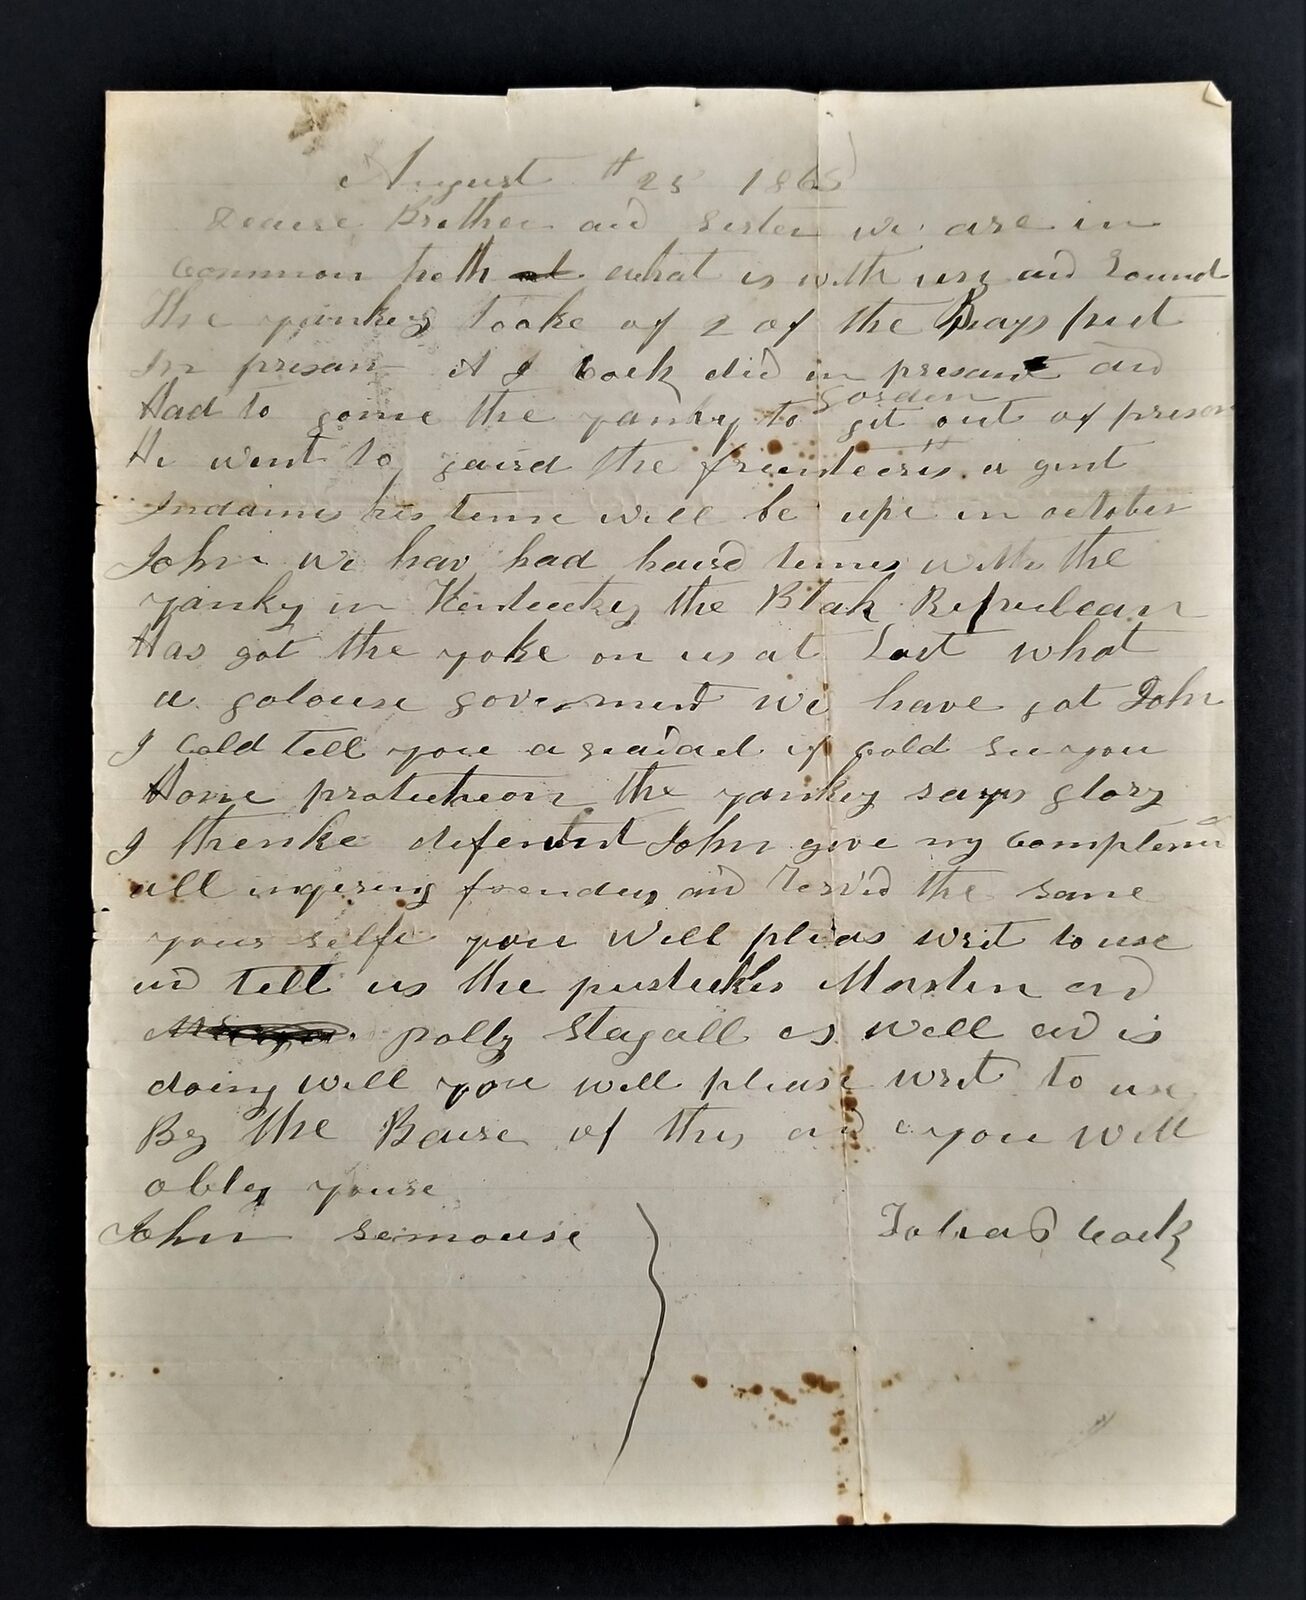 August 25 1865
Deaire Brother and Sister we are in
common helth what is with us and Sound
The yankeys Tooke of 2 of the Boays put
in presan A J Cock did in presant and
Had to gorne the yanky to git out of preson
gorden
He went to gaird the frunteers a gint
Indaines his time will be upe in october
John we hav had haird times with the
yanky in Kentuckey the Blak Republican
Has got the yoke on us at Last what
a golouse goverment we have got John
I Cold tell you a if cold see you
Home protecheon the yankey says glory
I thenke deferent John give my complemen
all inqireng frendes and resivd the same
your selfe you will pleas writ to use
and tell us the pertickles Marten and
polly Stagall is well and is
doing well you will please writ to use
By the Baire of this and you will
obley youre
John Semouse
Tobias Cock